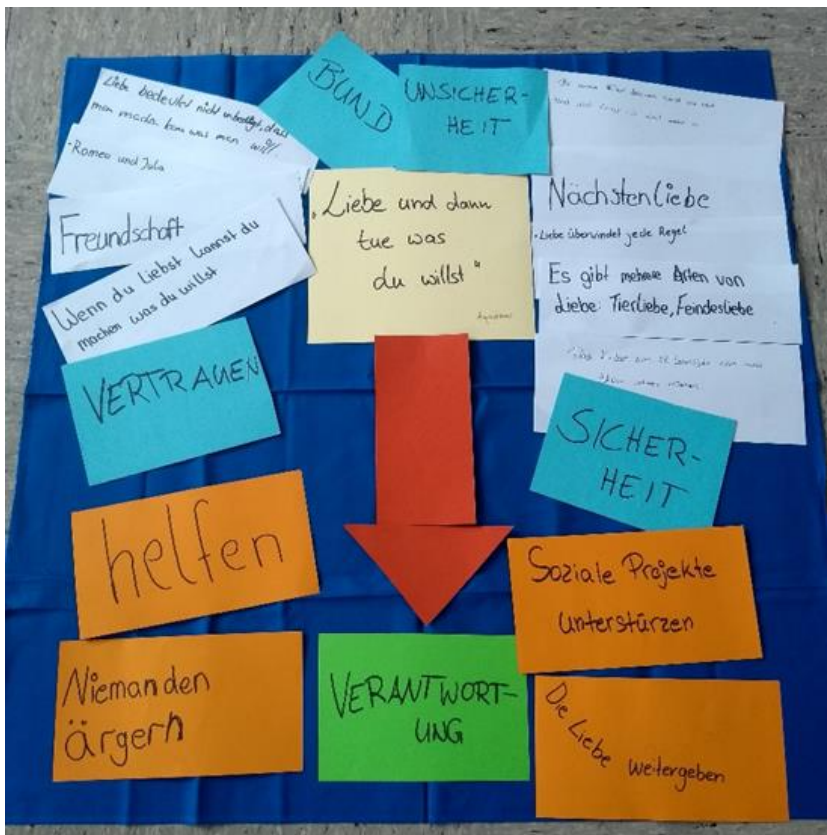 BUND
UNSICHER-
HEIT
Liebe bedeutet nicht unbedingt, dass
man machen kann was man will.
• Romeo und Julia
Freundschaft
Wenn du liebst kannst du
machen was du willst
„Liebe und dann
tue was
du willst"
Nächstenliebe
• Liebe überwindet jede Regel
Es gibt mehrere Arten von
Liebe: Tierliebe, Feindesliebe
VERTRAUEN
SICHER-
HEIT
helfen
Soziale Projekte
unterstürzen
Niemanden
ärgern
VERANTWORT-
UNG
Die Liebe weitergeben